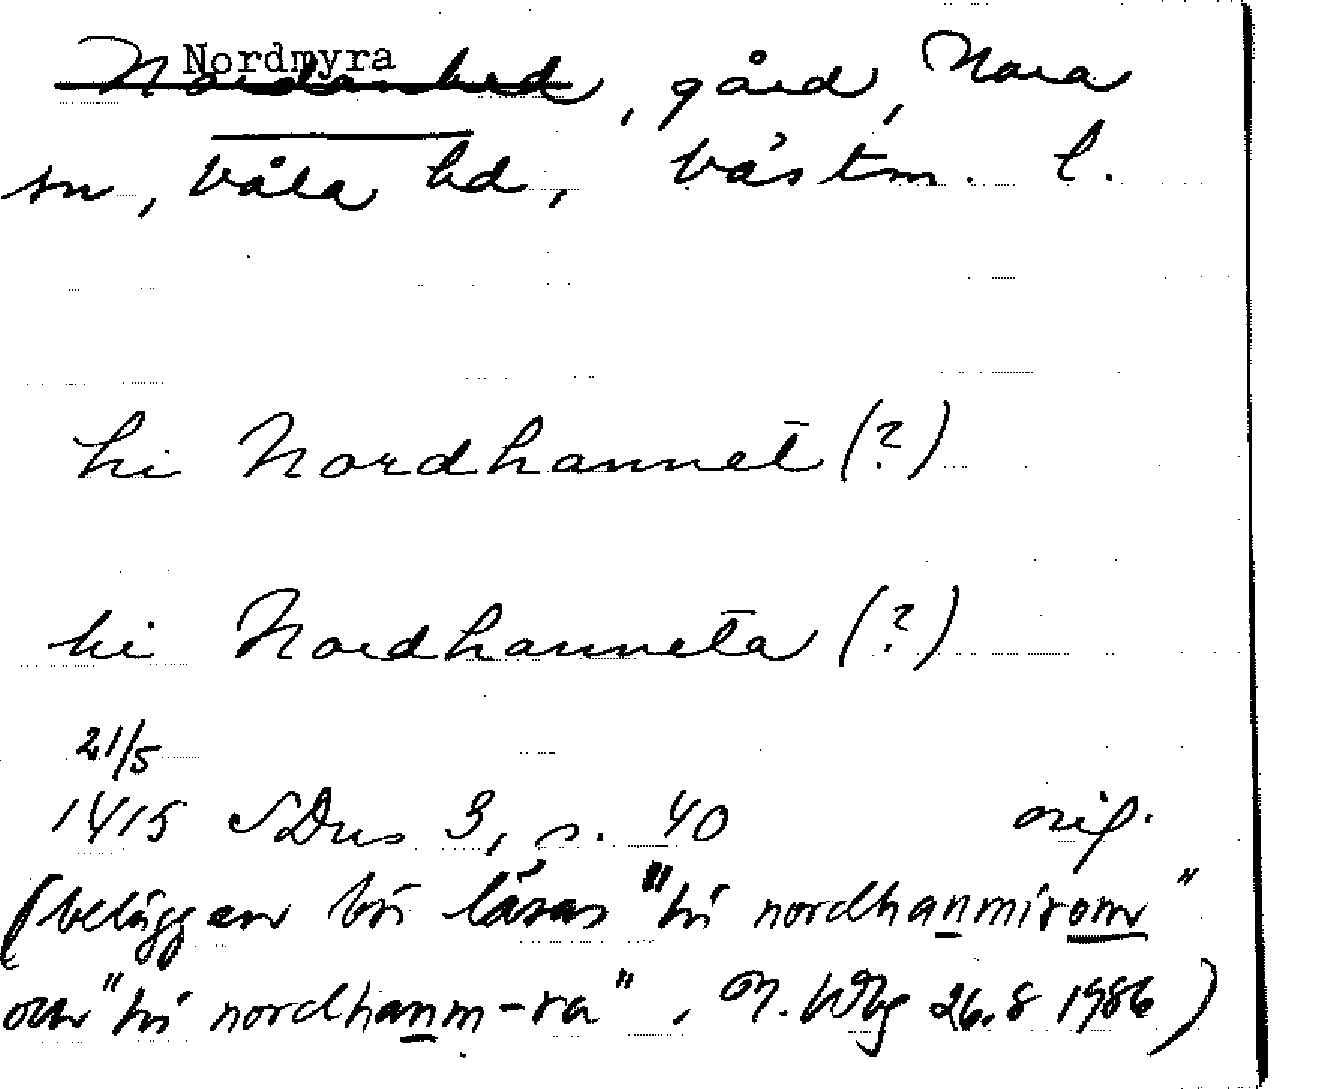 Nordmyra
Nordanhed, gård, Nora
sn, Våla hd, Västm. l.
hi Nordhannet̄ (?)
hi Nordhannet̄a (?)
21/5
1415 SDns 3, s. 40 orig.
(beläggen bör läsas "hi nordhanmirom"
och "hi nordhanm-ra", M. Wbg 26.8 1986)